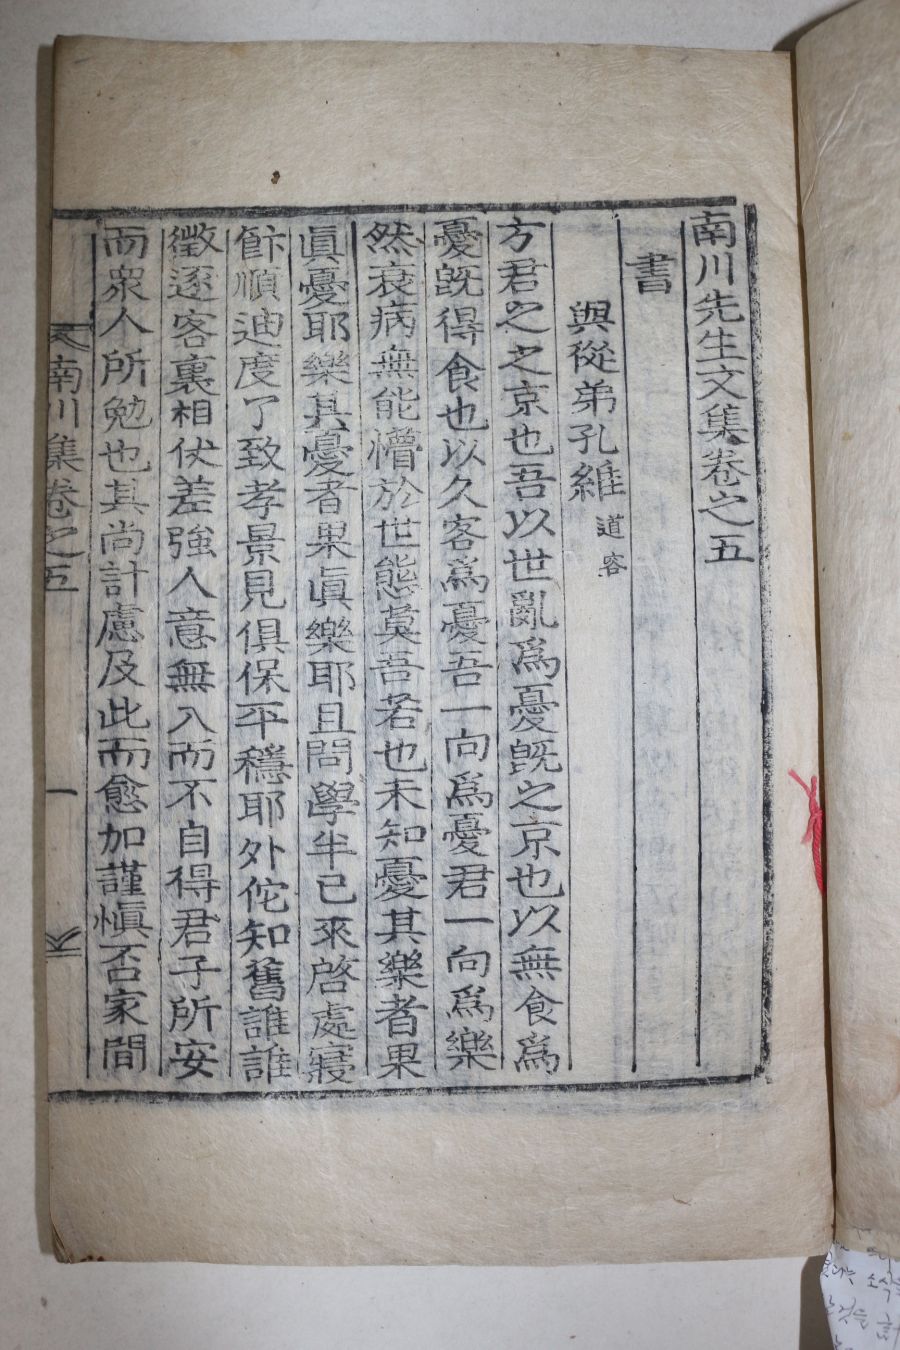 南川先生文集卷之五
書
與從弟孔維 道容
方君之之京也吾以世亂爲憂旣之京也以無食爲
憂旣得食也以久客爲憂吾一向爲憂君一向爲樂
然衰病無能懵於世態莫吾若也未知憂其樂者果
眞憂耶樂其憂者果眞樂耶且問學半已來啓處寢
飰順迪度了致孝景見俱保平穩耶外佗知舊誰誰
徵逐客裏相伏差強人意無入而不自得君子所安
而衆人所勉也其尚計慮及此而愈加謹愼否家間
南川集卷之五
一